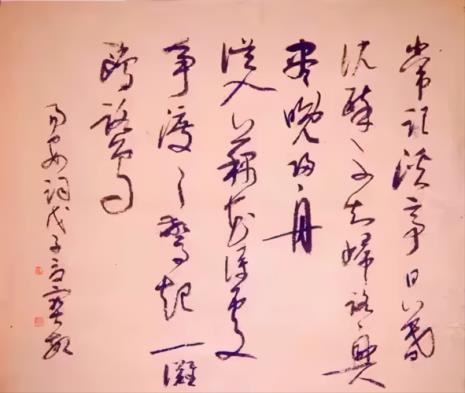 常記溪亭日暮
沈醉不知歸路興
盡晚回舟
誤入藕花深處
爭渡〻驚起一灘
鷗鷺
易安詞戊子